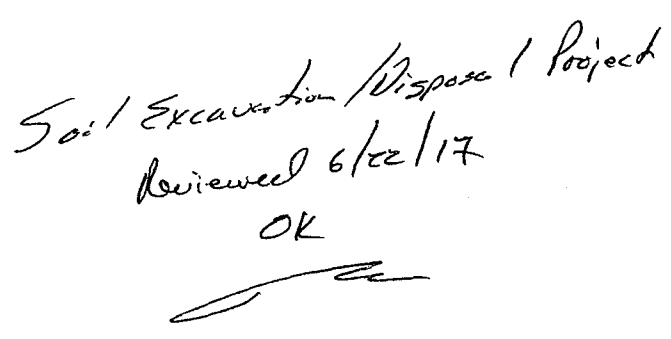 Soil Excavation/Disposal Project
Reviewed 6/22/17
OK